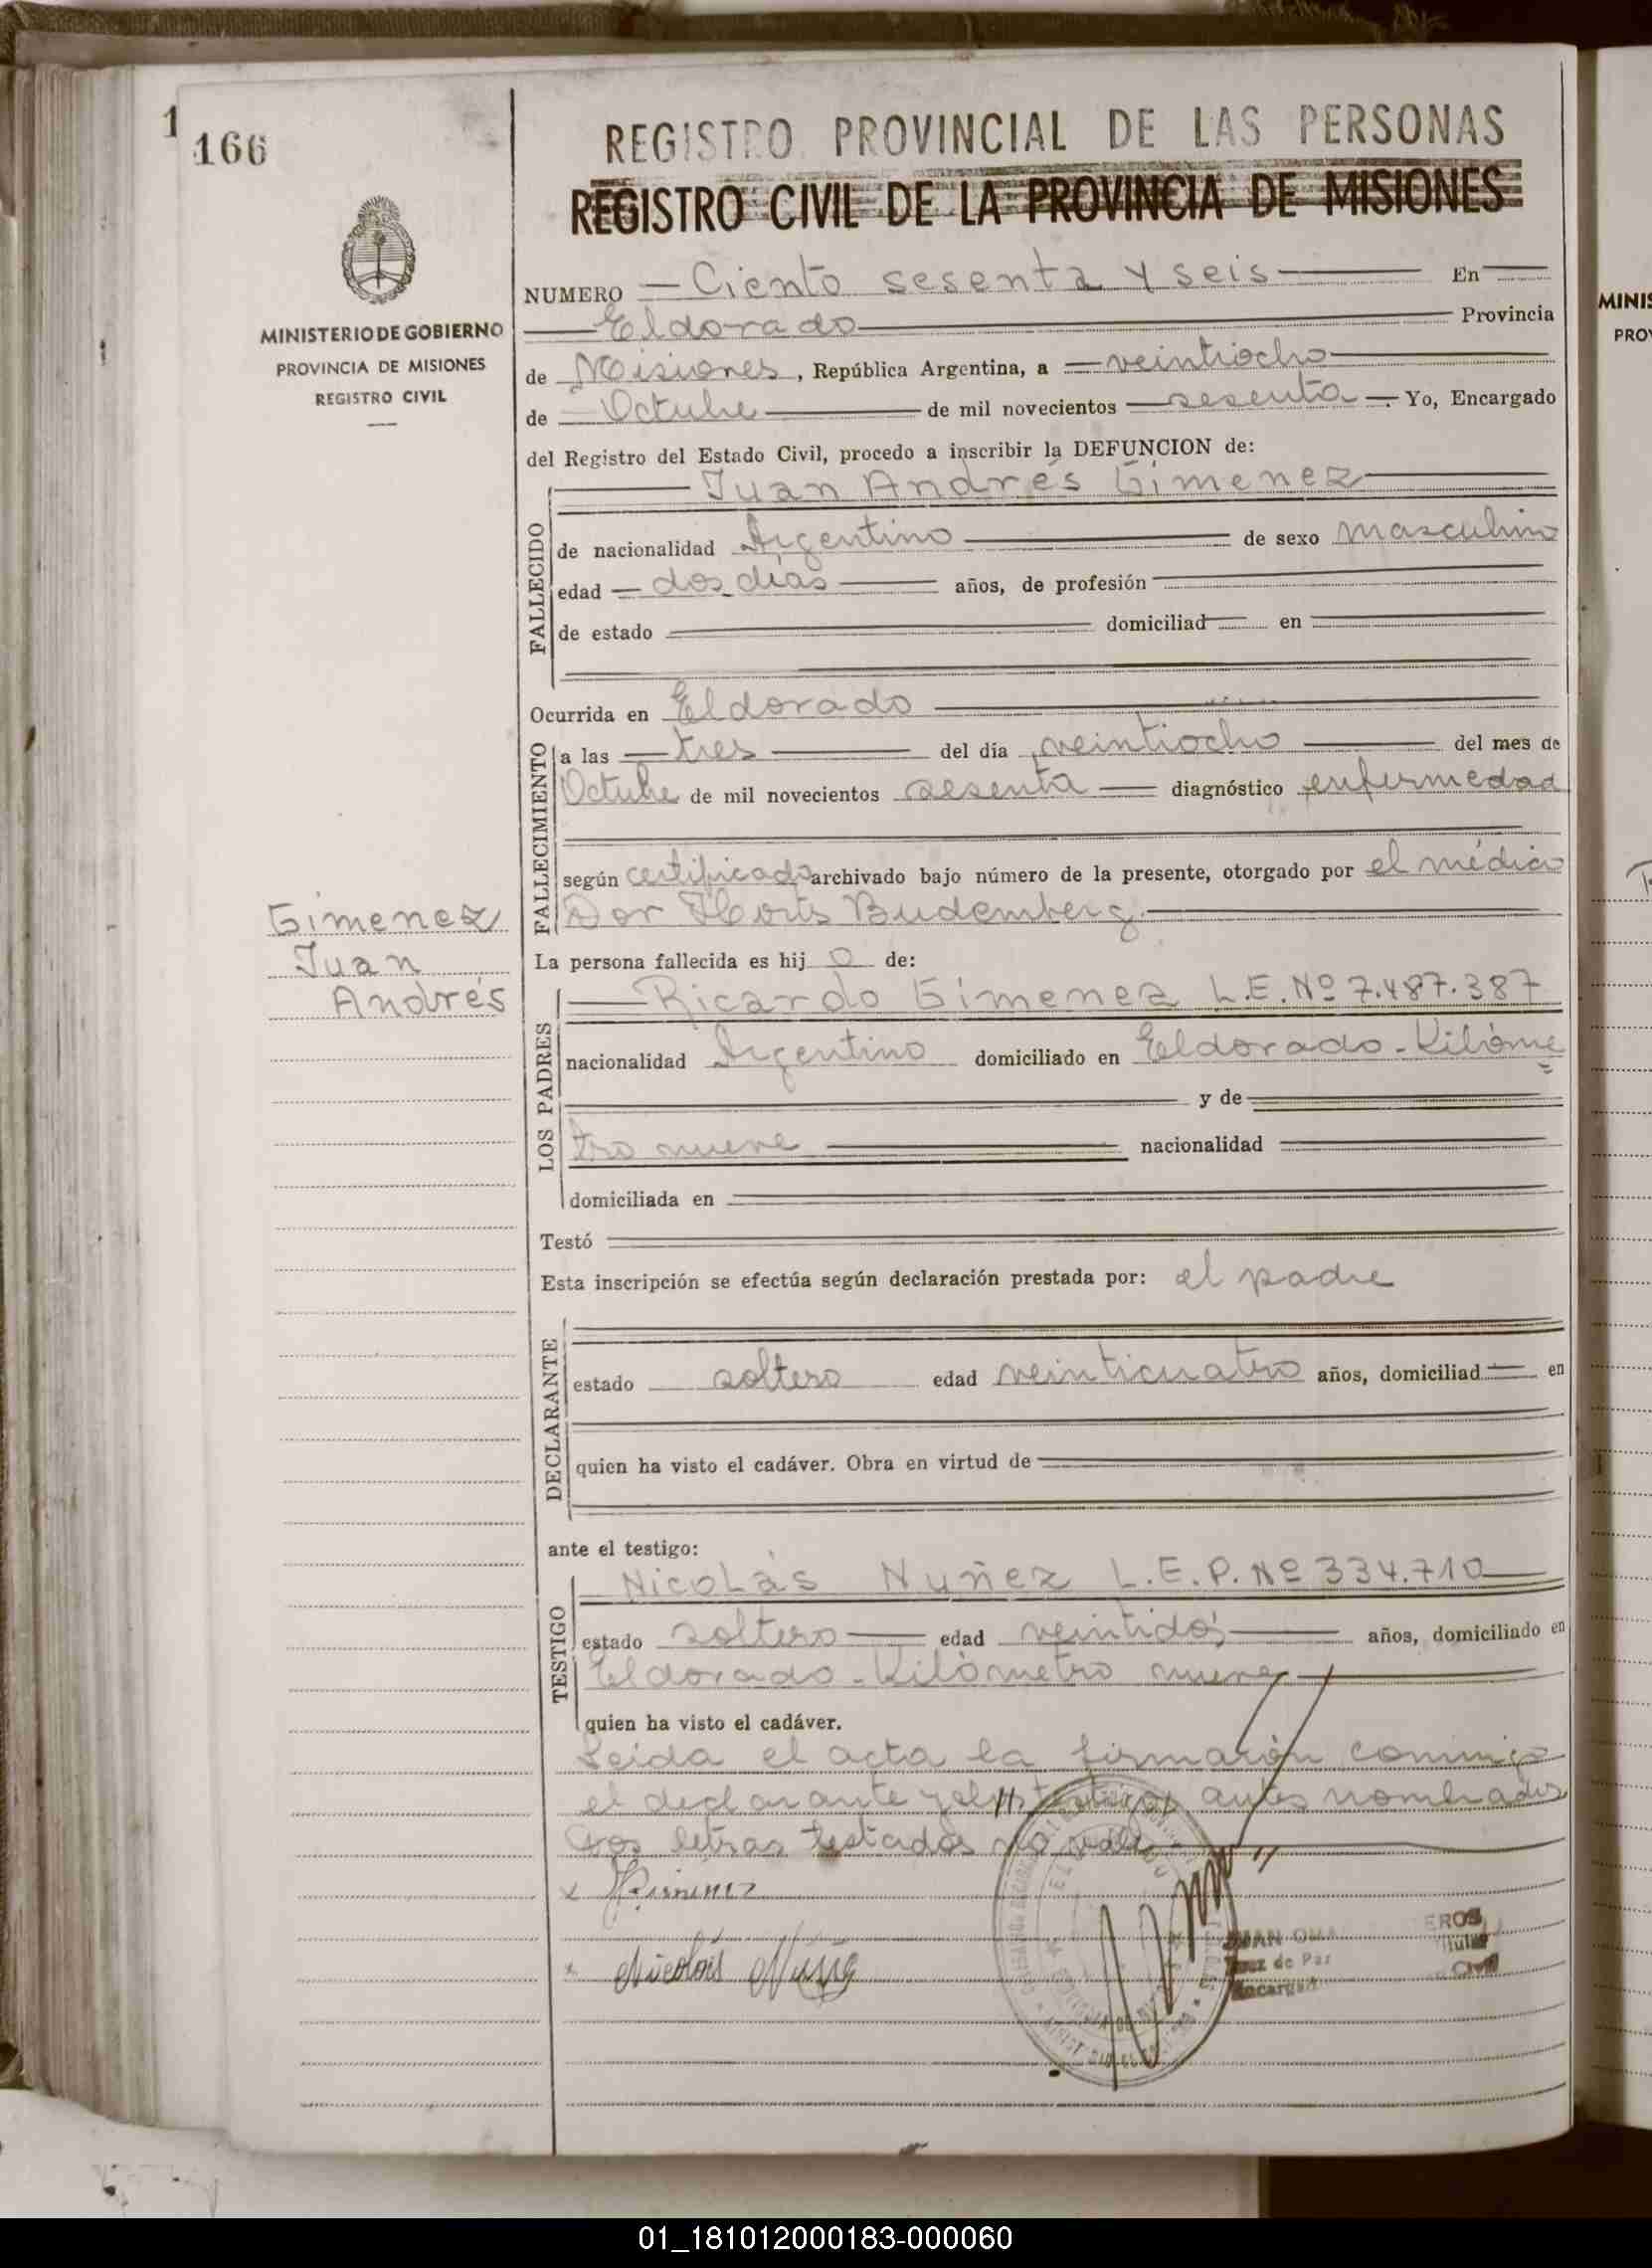 1
166
REGISTRO PROVINCIAL DE LAS PERSONAS
REGISTRO CIVIL DE LA PROVINCIA DE MISIONES
MINISTERIO DE GOBIERNO
PROVINCIA DE MISIONES
REGISTRO CIVIL
NUMERO Ciento sesenta y seis En
Eldorado Provincia
de Misiones, República Argentina, a veintiocho
de Octubre de mil novecientos sesenta. Yo, Encargado
del Registro del Estado Civil, procedo a inscribir la DEFUNCION de:
Juan Andrés Gimenez
FALLECIDO
de nacionalidad Argentino de sexo masculino
edad dos días años, de profesión
de estado domiciliad en
Ocurrida en Eldorado
FALLECIMIENTO
a las tres del día veintiocho del mes de
Octubre de mil novecientos sesenta diagnóstico enfermedad
según certificado archivado bajo número de la presente, otorgado por el médico
Dor Horts Budemberg
Gimenez
Juan
Andrés
La persona fallecida es hij o de:
LOS PADRES
Ricardo Gimenez L.E. Nº 7.487.387
nacionalidad Argentino domiciliado en Eldorado - Kilóme
y de
tro nueve nacionalidad
domiciliada en
Testó
Esta inscripción se efectúa según declaración prestada por: el padre
DECLARANTE
estado soltero edad veinticuatro años, domiciliad en
quien ha visto el cadáver. Obra en virtud de
ante el testigo:
TESTIGO
Nicolás Nuñez L.E.P. Nº 334.710
estado soltero edad veintidós años, domiciliado en
Eldorado - Kilómetro nueve
quien ha visto el cadáver.
Leida el acta la firmarón conmigo
el declarante y el testigo antes nombrados
Dos letras testados no vale
x Gimenez
x Nicolás Núñez
JUAN EROS
Juez de Paz Titular
Encargado Civil
MINIS
PRO
01_181012000183-000060